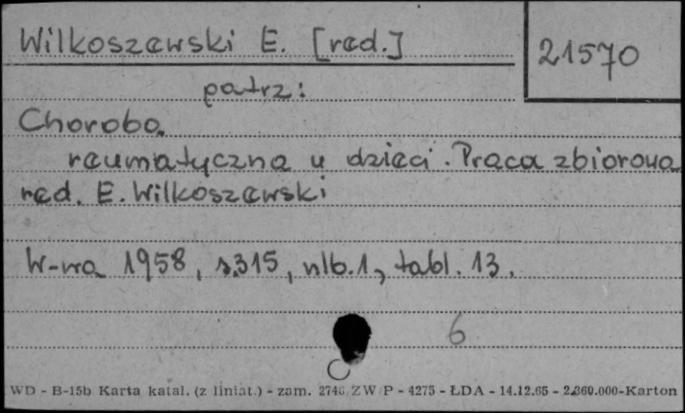 Wilkoszewski E. [red.]
21570
patrz:
Choroba
reumatyczna u dzieci. Praca zbiorowa
red. E. Wilkoszewski
W-wa 1958, s.315, nlb.1, tabl. 13.
6
WD - B-15b Karta katal. (z liniat.) - zam. ZW P - 4275 - ŁDA - 14.12.65 - 2.360.000-Karton